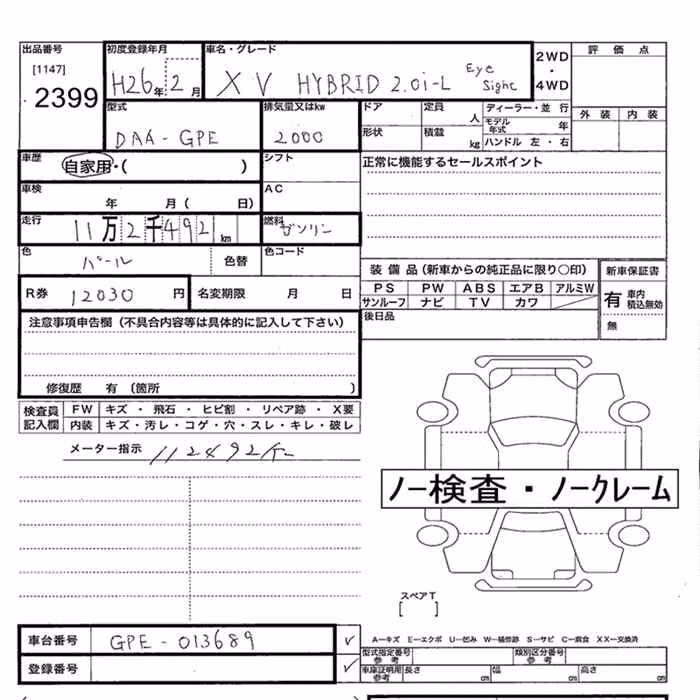 出品番号
[1147]
2399
初度登録年月
H26年2月
車名・グレード
XV HYBRID 2.0i-L Eye Sight
2WD・4WD
評価点
外装 内装
型式
DAA-GPE
排気量又はkw
2000
ドア
定員 人
ディーラー・並行
モデル年式 年
形状
積載 kg
ハンドル 左・右
車歴
自家用・( )
シフト
正常に機能するセールスポイント
車検
年 月( 日)
AC
走行
11万2千492km
燃料
ガソリン
色
パール
色替
色コード
R券
12030円
名変期限 月 日
装備品(新車からの純正品に限り○印)
PS PW ABS エアB アルミW
サンルーフ ナビ TV カワ
後日品
新車保証書
有 車内積込無効
無
注意事項申告欄(不具合内容等は具体的に記入して下さい)
修復歴 有(箇所 )
検査員記入欄
FW キズ・飛石・ヒビ割・リペア跡・X要
内装 キズ・汚レ・コゲ・穴・スレ・キレ・破レ
メーター指示 112492K
ノー検査・ノークレーム
スペアT
[ ]
車台番号
GPE-013689
登録番号
A—キズ E—エクボ U—凹み W—補修跡 S—サビ C—腐食 XX—交換済
型式指定番号 参考
類別区分番号 参考
車庫証明用 参考 長さ cm 幅 cm 高さ cm